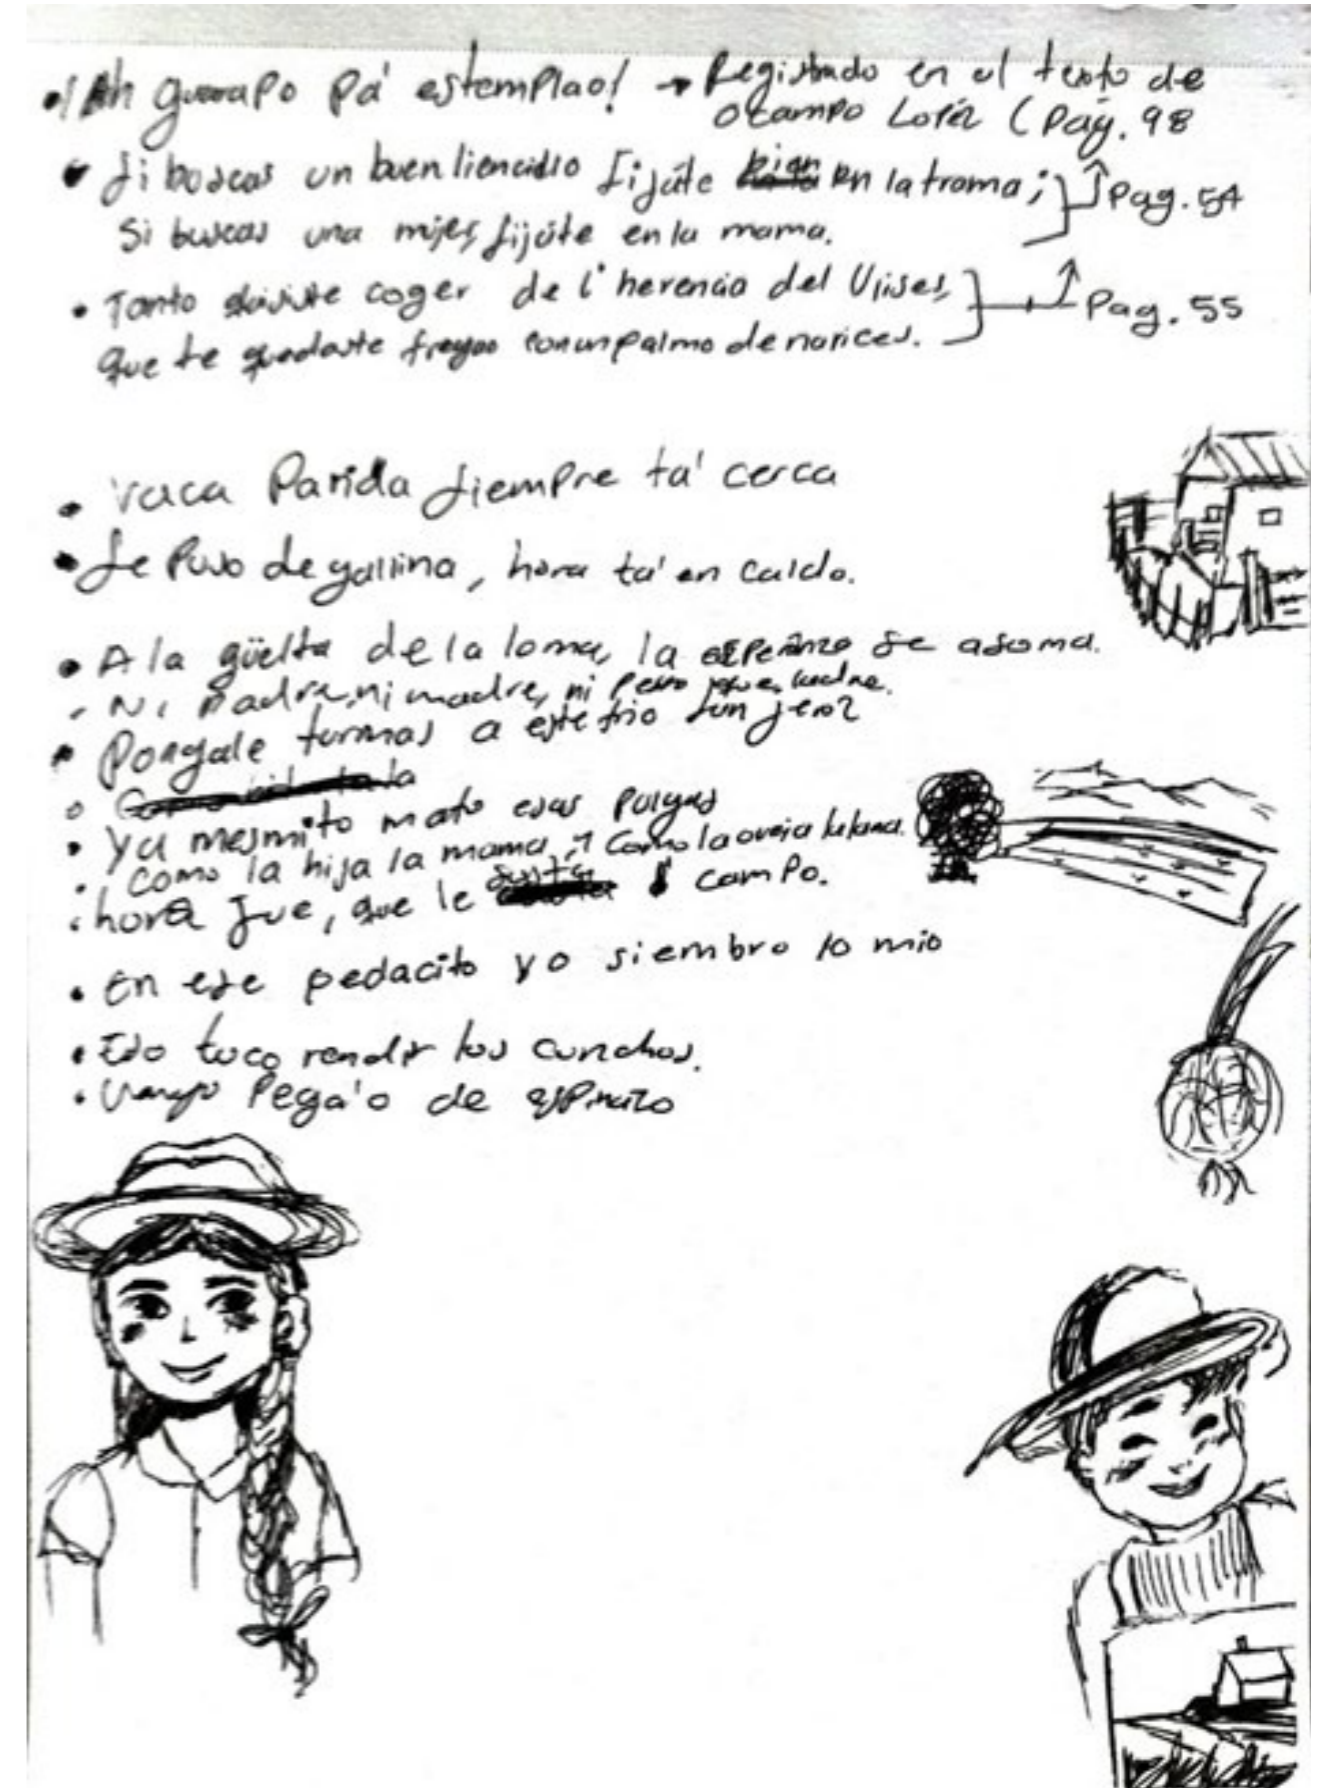 • ¡Ah guarapo pa' estemplao! → Registrado en el texto de
Ocampo López (Pág. 98
• Si buscas un buen liencillo fijáte bien en la trama;
Si buscas una mujer, fijáte en la mama.
Pag. 54
• Tanto coger de l' herencia del Ulises,
que te quedaste con un palmo de narices.
Pag. 55
• Vaca Parida siempre ta' cerca
• Se Puso de gallina, hora ta' en caldo.
• A la güelta de la loma, la esperanza se asoma.
• Ni Padre, ni madre, ni Perro que
• Pongale turmas a este frio
• Ya mesmito mato esas pulgas
• Como la hija la mama, como la oveja la lana.
• hora jue, que le gusta campo.
• En ese pedacito yo siembro lo mio
• Eso toco rendir los cunchos.
• Pega'o de espinazo